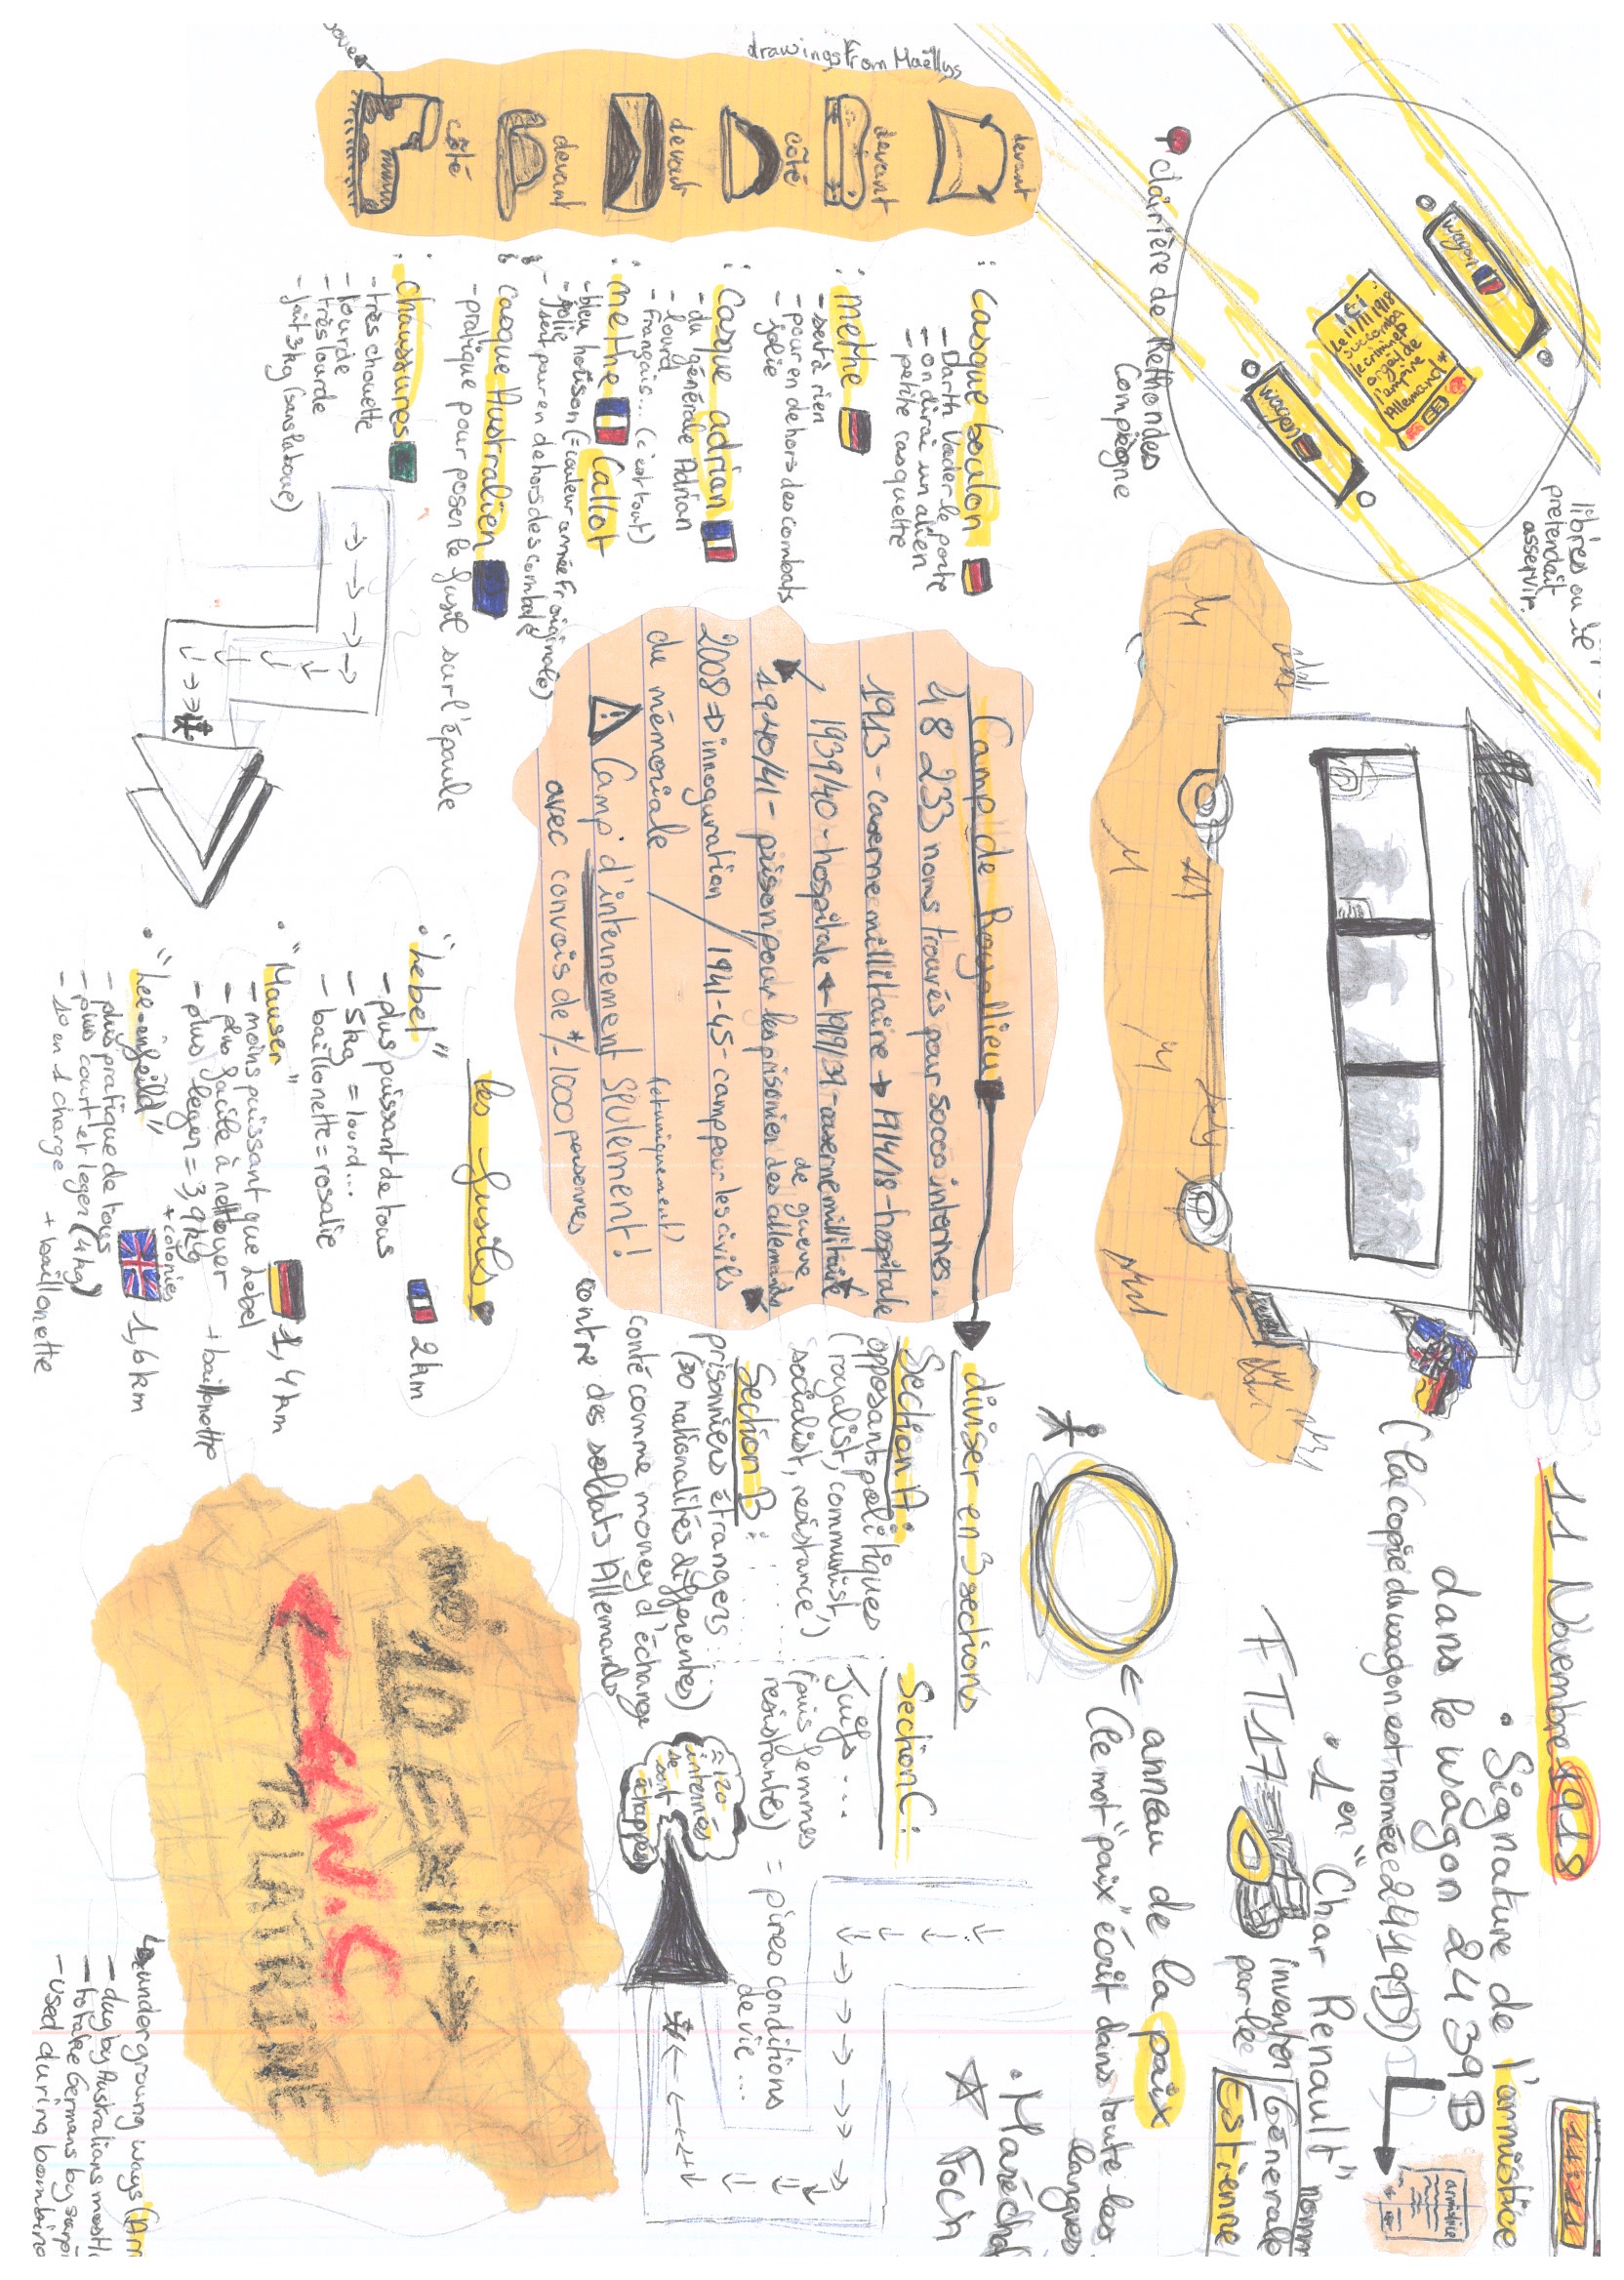 11 Novembre 1918
• Signature de l'armistice
dans le wagon 2439B
(la copie du wagon est nomée 2419D)
armistice
• 1er "Char Renault" nomm
FT17
inventer
par le
Générale
Estienne
← anneau de la paix
(le mot "paix" écrit dans toute les
langues
• Maréchal
Foch
libres
prétendait
asservir.
wagon
Ici
le 11/11/1918
succomba
le criminel
orgeil de
l'empire
Allemand*
wagon
clairière de Rethondes
Compiègne
drawings from Maëllys
devant
devant
côté
devant
devant
côté
: Casque boulon
- Darth Vader le porte
- on dirai un alien
- petite casquette
: methe
- sert à rien
- pour en dehors des combats
- jolie
: Casque adrian
- du générale Adrian
- lourd
- français... (c'est tout)
: methe Callot
- bleu horison (= couleur armée Fr originale)
- jolie
- sert pour en dehors des combats
: casque Australien
- pratique pour poser le fusil sur l'épaule
: chaussures
- très chouette
- lourde
- très lourde
- fait 3kg (sans la boue)
Camp de Royallieu
48 233 noms trouvés pour 50000 internes.
1913 - caserne millitaire → 1914/18 - hospitale
1939/40 - hospitale ← 1919/39 - caserne millitaire
de guerre
1940/41 - prison pour les prisonier des allemands
2008 → innoguration / 1941-45 - camp pour les civils
du mémoriale
(etuniquement)
Camp d'internement SEULEMENT!
avec convois de +/- 1000 personnes
diviser en 3 sections
Section A:
opposants politiques
(royalist, communist,
socialist, resistance,)
Section B:
prisonniers étrangers
(30 nationalités différentes)
conté comme money d'échange
contre des soldats Allemands
Section C:
Juifs...
(puis femmes
resistantes)
= pires conditions
de vie...
≈ 120
internés
se sont
échappés
les fusils
• "Lebel" 2km
- plus puissant de tous
- 5kg = lourd...
- baillonette = rosalie
• "Mauser" 1,4km
- moins puissant que Lebel
- plus facile à nettoyer
- plus léger = 3,9kg
+ baillonette
• "Lee-enfeild" + colonies 1,6km
- plus pratique de tous
- plus court et leger (4kg)
- 10 en 1 charge
+ baillonette
no: 10 EXIT →
← W.C
TO LATRINE
↳ underground ways
- dug by Australians
- to take Germans by
- used during